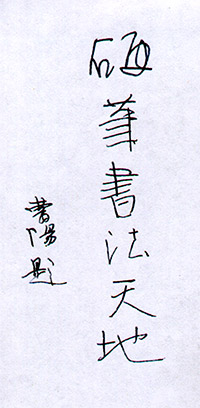 硬筆書法天地
曹陽題